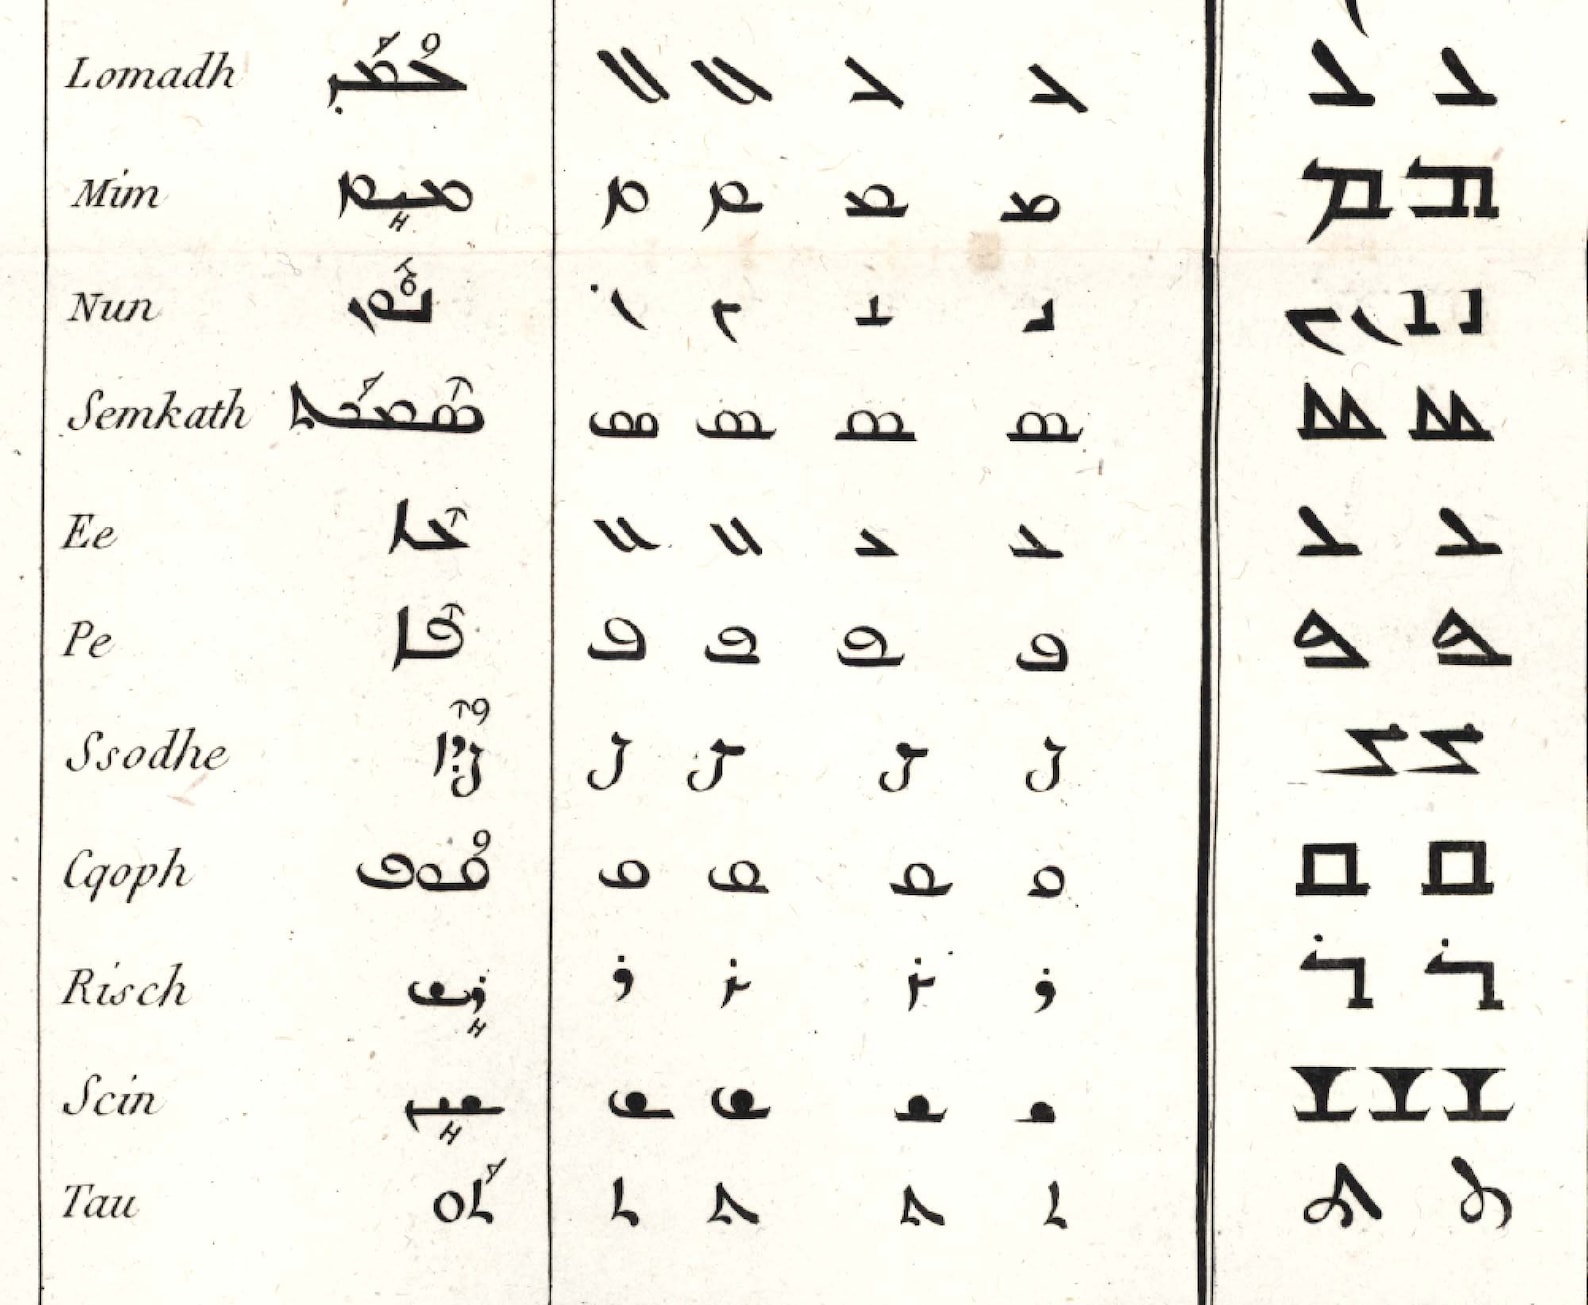 Lomadh ܠܳܡܰܕ ܠ ܠ ܠ ܠ ܠ ܠ
Mim ܡܺܝܡ ܡ ܡ ܡ ܡ ܡ ܡ
Nun ܢܽܘܢ ܢ ܢ ܢ ܢ ܢ ܢ ܢ ܢ
Semkath ܣܶܡܟܰܬ ܣ ܣ ܣ ܣ ܣ ܣ
Ee ܥܶܐ ܥ ܥ ܥ ܥ ܥ ܥ
Pe ܦܶܐ ܦ ܦ ܦ ܦ ܦ ܦ
Ssodhe ܨܳܕܶܐ ܨ ܨ ܨ ܨ ܨ ܨ
Cqoph ܩܳܘܦ ܩ ܩ ܩ ܩ ܩ ܩ
Risch ܪܺܝܫ ܪ ܪ ܪ ܪ ܪ ܪ
Scin ܫܺܝܢ ܫ ܫ ܫ ܫ ܫ ܫ ܫ
Tau ܬܰܘ ܬ ܬ ܬ ܬ ܬ ܬ